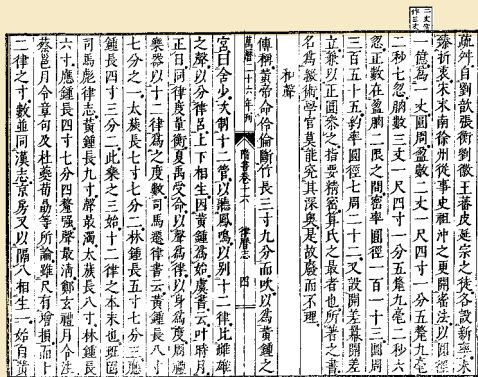 二丈當作三丈
疏舛自劉歆張衡劉徽王蕃皮延宗之徒各設新率未
臻折衷宋末南徐州從事史祖沖之更開密法以圓徑
一億爲一丈圓周盈數二丈一尺四寸一分五釐九毫
二秒七忽朒數三丈一尺四寸一分五釐九毫二秒六
忽正數在盈朒二限之間密率圓徑一百一十三圓周
三百五十五約率圓徑七周二十二又設開差冪開差
立兼以正圓參之指要精密算氏之最者也所著之書
名爲綴術學官莫能究其深奧是故廢而不理
和聲
傳稱黃帝命伶倫斷竹長三寸九分而吹以爲黃鍾之
萬曆二十六年刊
隋書卷十六 律曆志 四
宮曰含少次制十二管以聽鳳鳴以別十二律比雌雄
之聲以分律呂上下相生因黃鍾爲始虞書云叶時月
正日同律度量衡夏禹受命以聲爲律以身爲度周禮
樂器以十二律爲之度數司馬遷律書云黃鍾長八寸
七分之一太蔟長七寸七分二林鍾長五寸七分三應
鍾長四寸三分二此樂之三始十二律之本末也班固
司馬彪律志黃鍾長九寸聲最濁太蔟長八寸林鍾長
六寸應鍾長四寸七分四釐強聲最清鄭玄禮月令注
蔡邕月令章句及杜夔荀勗等所論雖尺有增損而十
二律之寸數並同漢志京房又以隔八相生一始自黃